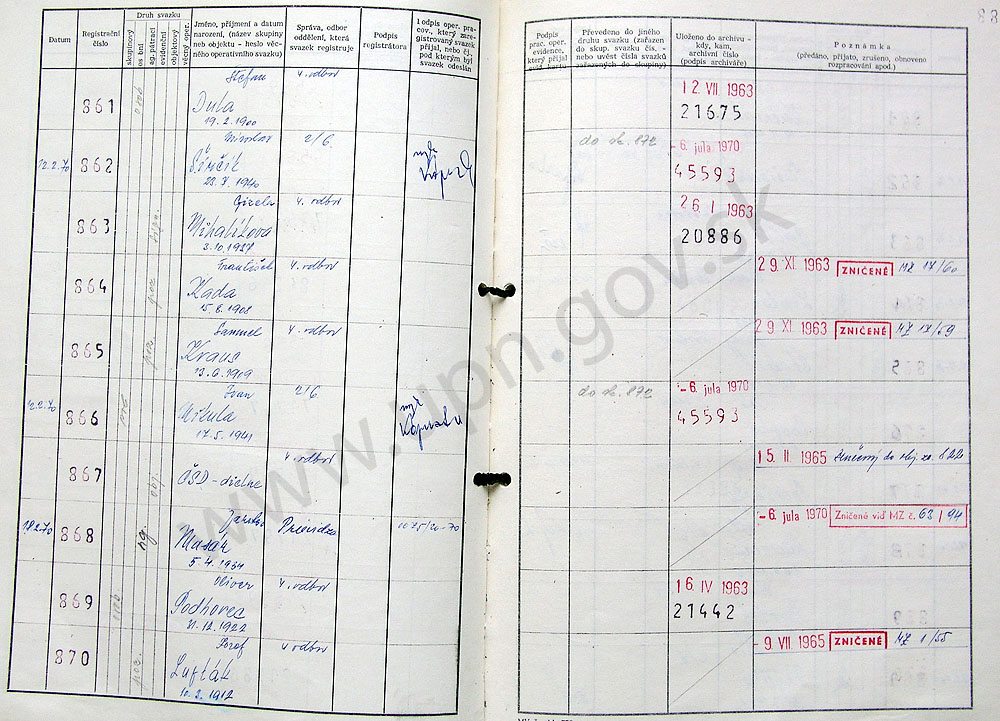 Druh svazku
Datum
Registrační číslo
skupinový
osobní
ag. pátrací
evidenční
objektový
věcný oper.
Jméno, příjmení a datum
narození, (název skupiny
neb objektu - heslo věc-
ného operativního svazku)
Správa, odbor
oddělení, která
svazek registruje
Podpis
registrátora
Podpis oper. pra-
cov., který zare-
gistrovaný svazek
přijal, nebo čj.,
pod kterým byl
svazek odeslán
Podpis
prac. oper.
evidence,
který přijal
Převedeno do jiného
druhu svazku (zařazen
do skup. svazku čís. -
nebo uvést čísla svazků
zařazených do skupiny)
Uloženo do archivu -
kdy, kam,
archivní číslo
(podpis archiváře)
Poznámka
(předáno, přijato, zrušeno, obnoveno
rozpracování apod.)
861 Štefan 4. odbor
Dula
19.2.1900
12 VII 1963
21675
12.2.70 862 Miroslav 2/6.
1940
do sk. 872
-6. jula 1970
45593
863 Gizela 4. odbor
Mihalíková
3.10.1937
26 I 1963
20886
864 František 4. odbor
Kada
15.8.1908
29. XI. 1963 ZNIČENÉ MZ 17/60
865 Samuel 4. odbor
Kraus
13.6.1909
29 XI 1963 ZNIČENÉ MZ 17/59
12.2.70 866 Ivan 2/6.
Mikula
17.5.1941
do sk. 872
-6. jula 1970
45593
867 4. odbor
ČSD - dielne
15. II. 1965
18.2.70 868 Prievidza 1075/20-70
Masár
5.4.1934
-6. jula 1970 Zničené viď MZ č. 63/94
869 Oliver 4. odbor
Podhorec
21.12.1922
16 IV 1963
21442
870 Jozef 4. odbor
Lufták
10.2.1912
-9. VII. 1965 ZNIČENÉ MZ 1/55
www.upn.gov.sk